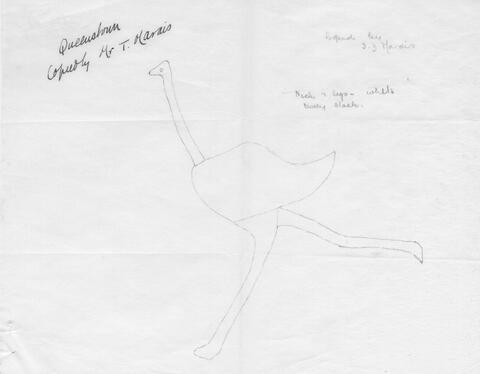 Queenstown
Copied by Mr T. Marais
by
Marais
Neck & legs - white
Body black.